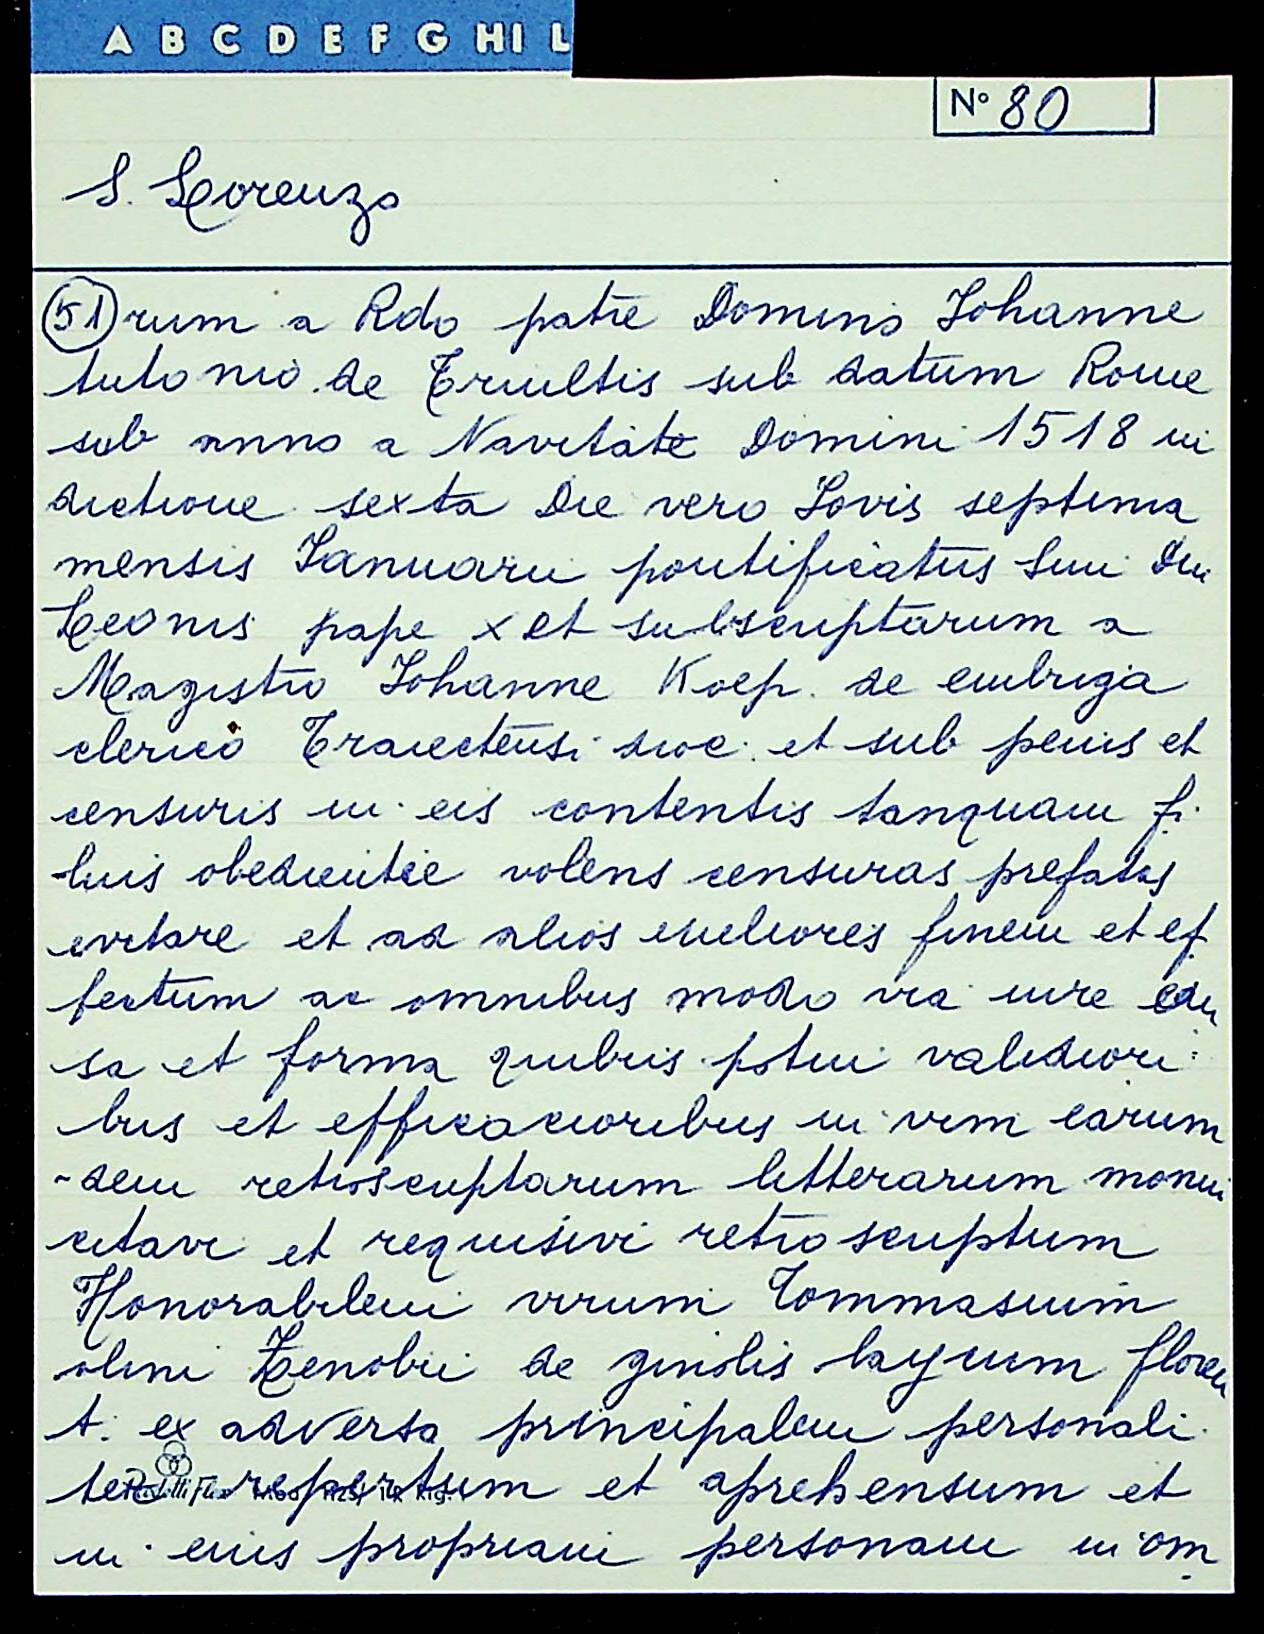 A B C D E F G HI L
N° 80
S. Lorenzo
51 rum a Rdo patre Domino Johanne
Antonio de Triultis sub datum Rome
sub anno a Navitate Domini 1518 in
dictione sexta Die vero Jovis septima
mensis Januarii pontificatus Smi Dni
Leonis pape X et subscriptarum a
Magistro Johanne Koep. de embriga
clerico Traiectensi dioc. et sub penis et
censuris in eis contentis tanquam fi
lius obedientie volens censuras prefatas
evitare et ad alios meliores finem et ef
fectum ac omnibus modo via iure cau
sa et forma quibus potui validiori
bus et efficacioribus in vim earum
-dem retroscriptarum litterarum monui
citavi et requisivi retroscriptum
Honorabilem virum Tommasium
olim Zenobii de ginolis laycum floren
t. ex adversa principalem personali
ter repertum et aprehensum et
in eius propriam personam in om